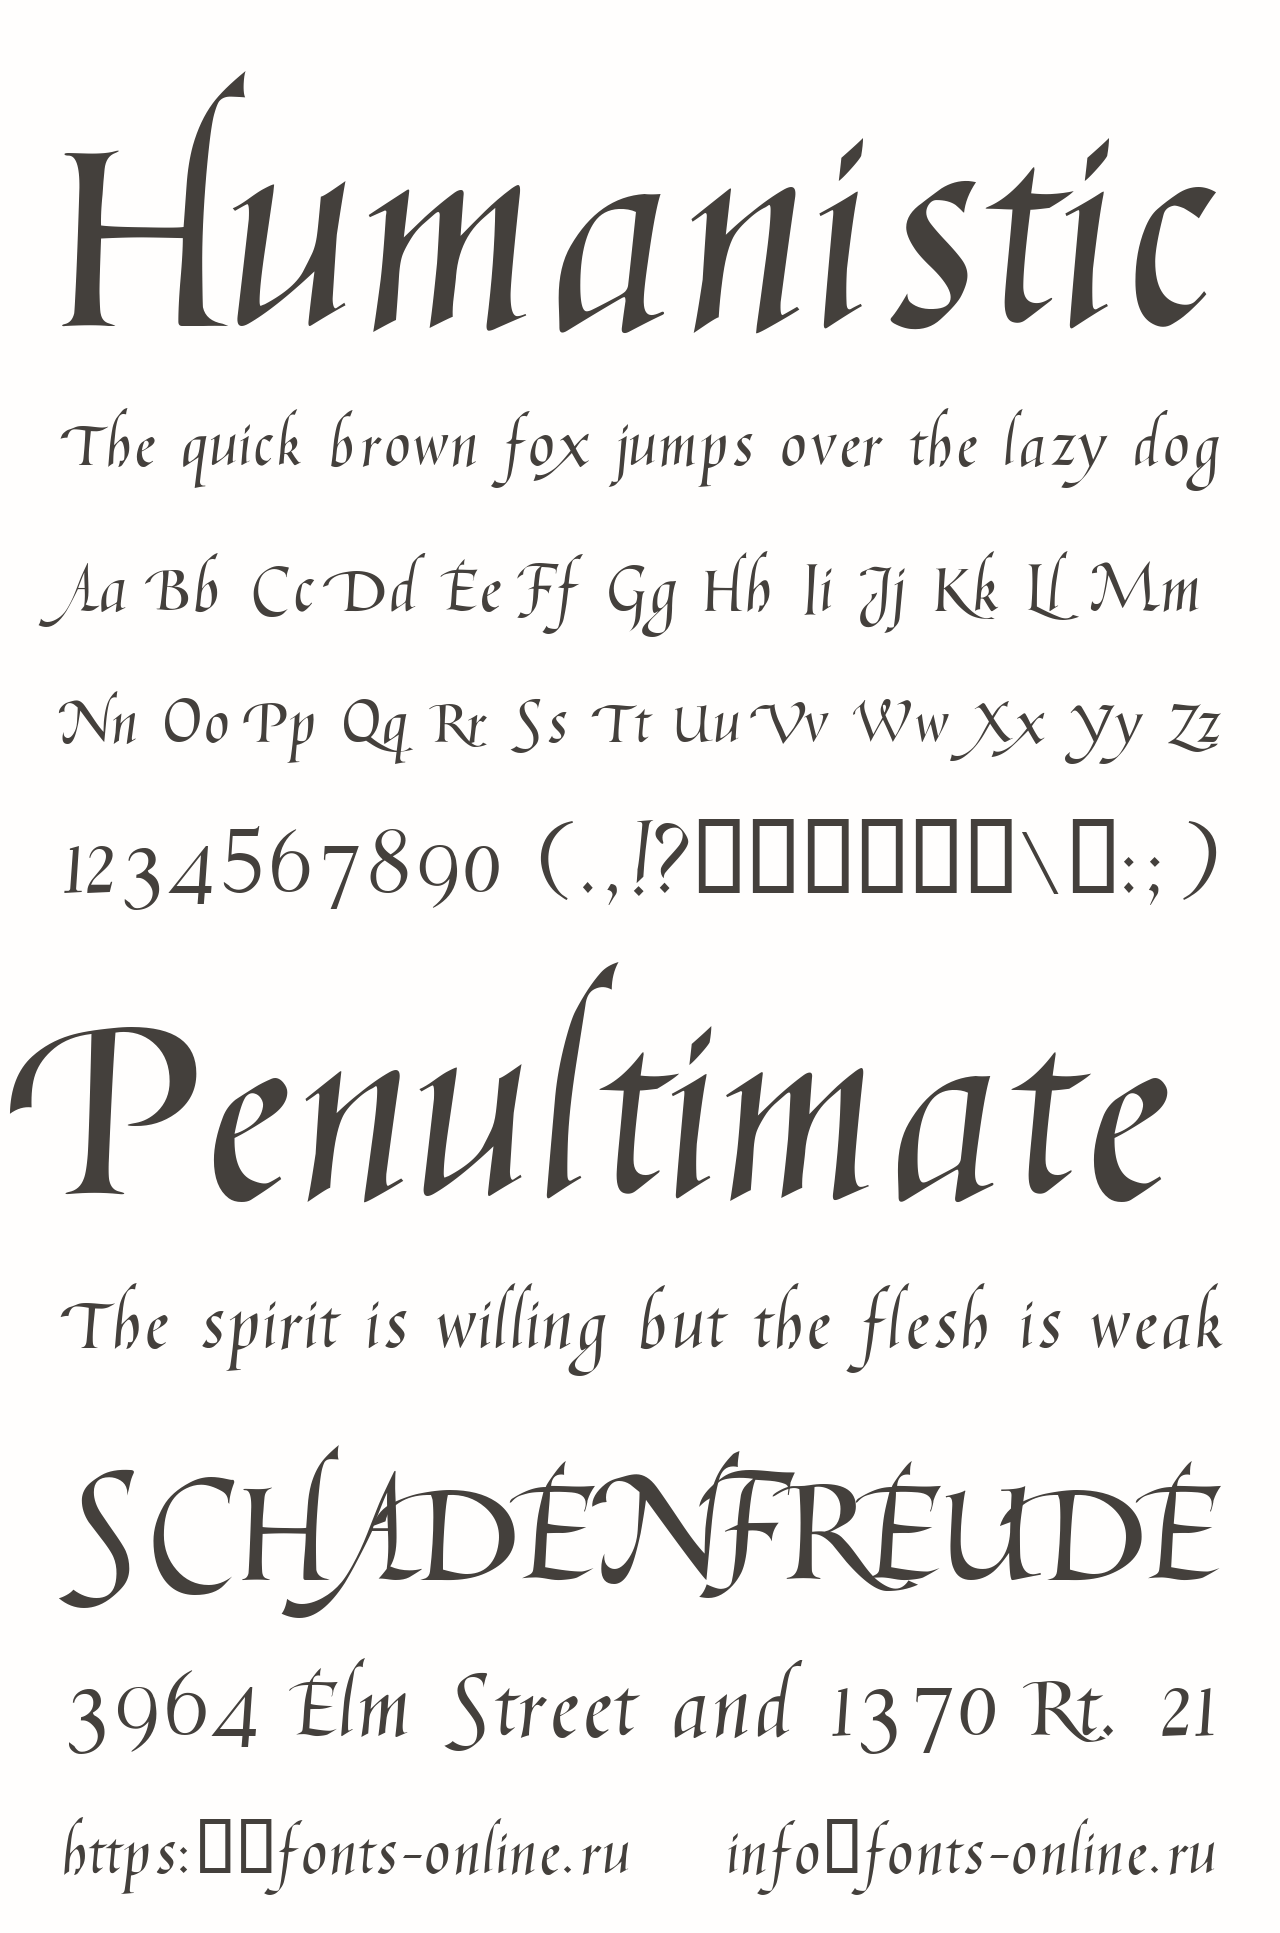 Humanistic
The quick brown fox jumps over the lazy dog
Aa Bb Cc Dd Ee Ff Gg Hh Ii Jj Kk Ll Mm
Nn Oo Pp Qq Rr Ss Tt Uu Vv Ww Xx Yy Zz
1234567890 (.,!?▯▯▯▯▯▯\▯:;)
Penultimate
The spirit is willing but the flesh is weak
SCHADENFREUDE
3964 Elm Street and 1370 Rt. 21
https:▯▯fonts-online.ru info▯fonts-online.ru